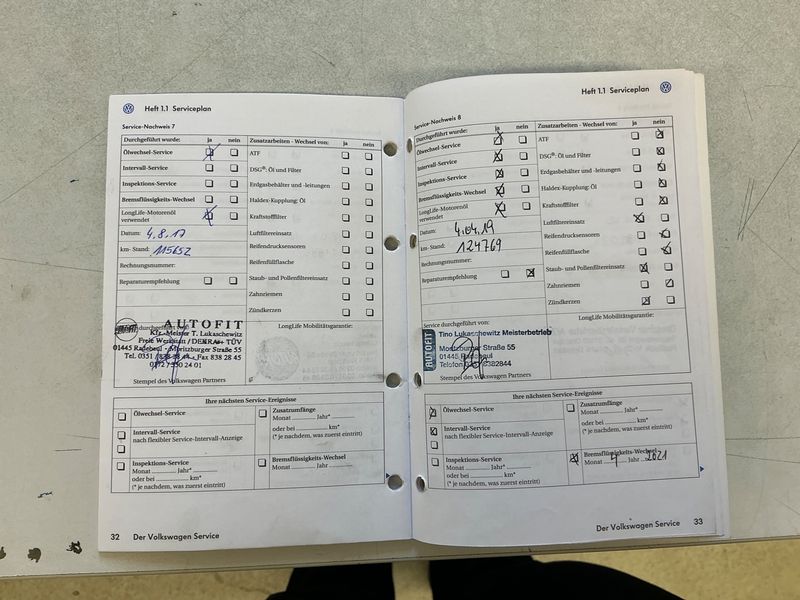 Heft 1.1 Serviceplan
Service-Nachweis 7
Durchgeführt wurde: ja nein
Ölwechsel-Service
Intervall-Service
Inspektions-Service
Bremsflüssigkeits-Wechsel
LongLife-Motorenöl
verwendet
Datum: 4.8.17
km- Stand: 115652
Rechnungsnummer:
Reparaturempfehlung
Zusatzarbeiten - Wechsel von: ja nein
ATF
DSG®: Öl und Filter
Erdgasbehälter und -leitungen
Haldex-Kupplung: Öl
Kraftstofffilter
Luftfiltereinsatz
Reifendrucksensoren
Reifenfüllflasche
Staub- und Pollenfiltereinsatz
Zahnriemen
Zündkerzen
AUTOFIT
Kfz.-Meister T. Lukaschewitz
Freie Werkstatt / DEKRA + TÜV
01445 Radebeul - Moritzburger Straße 55
Tel. 0351 Fax 838 28 45
0172 7 50 24 01
Stempel des Volkswagen Partners
LongLife Mobilitätsgarantie:
Ihre nächsten Service-Ereignisse
Ölwechsel-Service
Intervall-Service
nach flexibler Service-Intervall-Anzeige
Inspektions-Service
Monat Jahr*
oder bei km*
(* je nachdem, was zuerst eintritt)
Zusatzumfänge
Monat Jahr*
oder bei km*
(* je nachdem, was zuerst eintritt)
Bremsflüssigkeits-Wechsel
Monat Jahr
32 Der Volkswagen Service
Heft 1.1 Serviceplan
Service-Nachweis 8
Durchgeführt wurde: ja nein
Ölwechsel-Service
Intervall-Service
Inspektions-Service
Bremsflüssigkeits-Wechsel
LongLife-Motorenöl
verwendet
Datum: 4.04.19
km- Stand: 124769
Rechnungsnummer:
Reparaturempfehlung
Zusatzarbeiten - Wechsel von: ja nein
ATF
DSG®: Öl und Filter
Erdgasbehälter und -leitungen
Haldex-Kupplung: Öl
Kraftstofffilter
Luftfiltereinsatz
Reifendrucksensoren
Reifenfüllflasche
Staub- und Pollenfiltereinsatz
Zahnriemen
Zündkerzen
Service durchgeführt von:
AUTOFIT
Tino Lukaschewitz Meisterbetrieb
Moritzburger Straße 55
01445 Radebeul
Telefon 8382844
Stempel des Volkswagen Partners
LongLife Mobilitätsgarantie:
Ihre nächsten Service-Ereignisse
Ölwechsel-Service
Intervall-Service
nach flexibler Service-Intervall-Anzeige
Inspektions-Service
Monat Jahr*
oder bei km*
(* je nachdem, was zuerst eintritt)
Zusatzumfänge
Monat Jahr*
oder bei km*
(* je nachdem, was zuerst eintritt)
Bremsflüssigkeits-Wechsel
Monat 4 Jahr 2021
Der Volkswagen Service 33